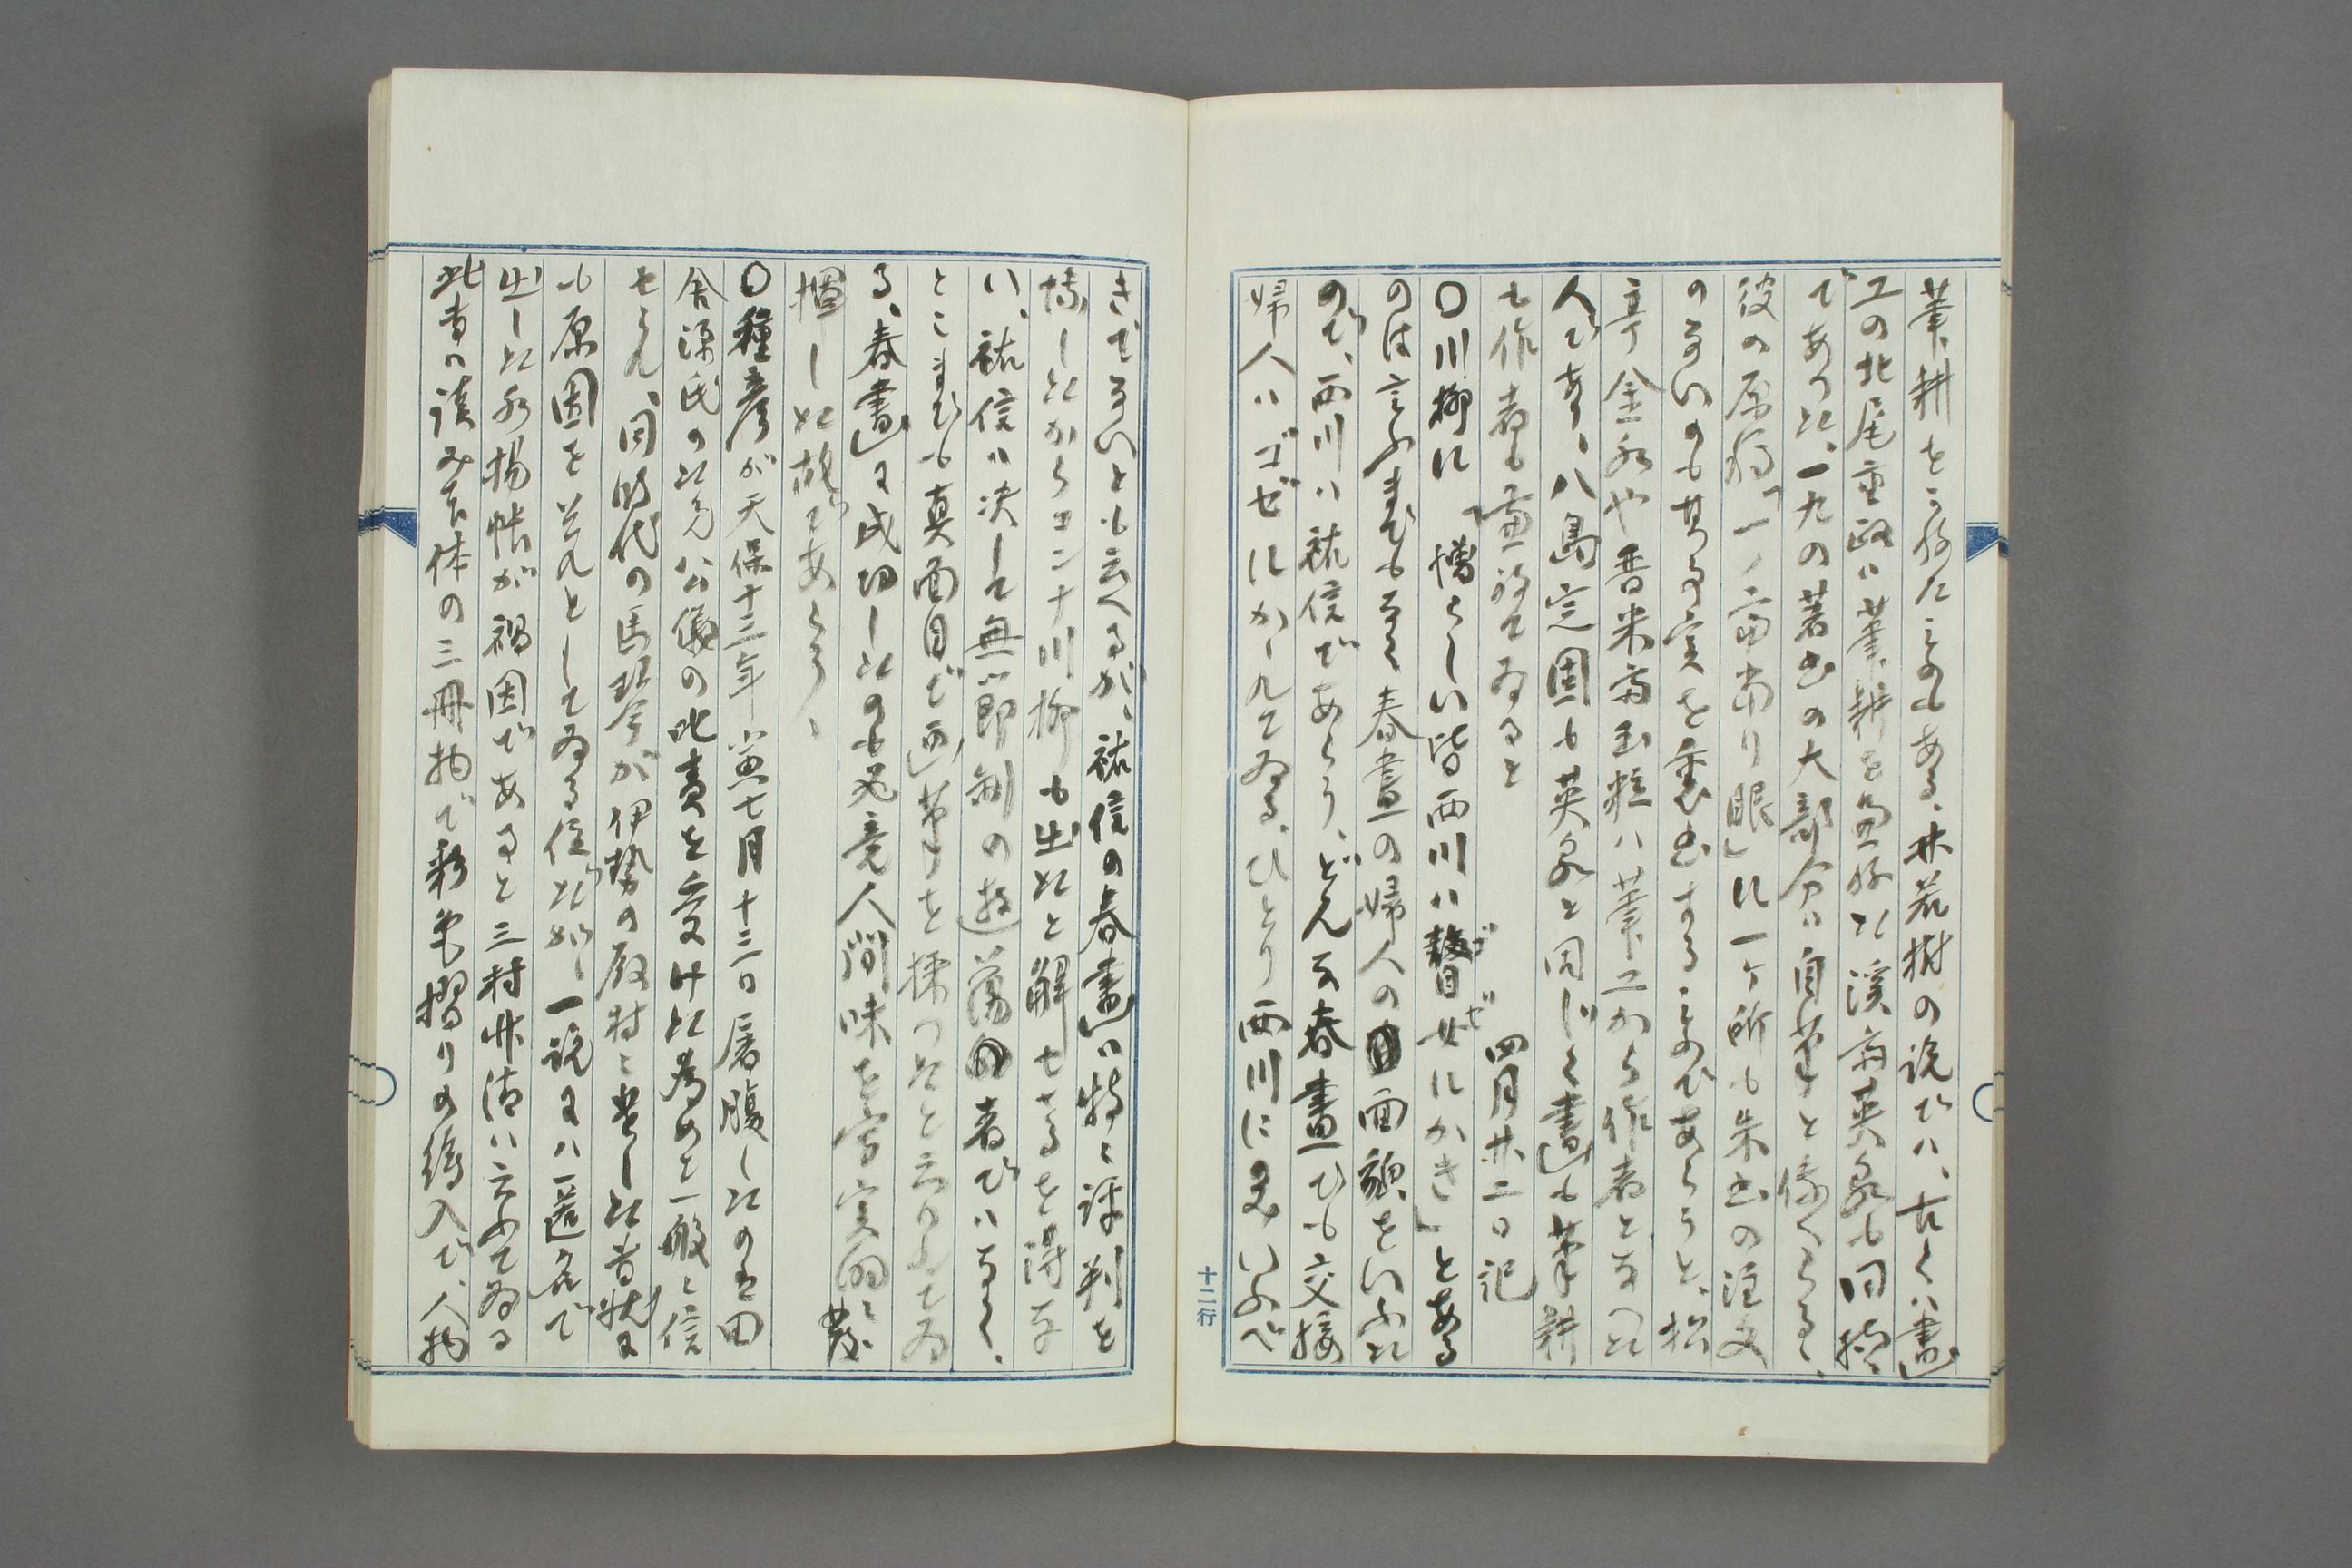 筆耕をこねたこともある、林若樹の説では、古くは畫
工の北尾重政は筆耕を兼ね、渓斎英泉も同様
であつた、一九の著書の大部分は自筆と傳へらる、
彼の原稿「一ノ富当り眼」に一ヶ所も朱書の注文
のないのも其事実を裏書することであらうと、松
亭金水や晋米斎玉粒ハ筆工から作者となつた
人である、八島定岡も英泉と同じく畫も筆耕
も作者も兼ねてゐると
四月廿二日記
〇川柳に「憎らしい皆西川ハ瞽女にかき」とある
のは言ふまでもなく春畫の婦人の面貌をいふた
ので、西川ハ祐信であらう、どんな春畫でも交接
婦人ハゴゼにかゝれてゐる、ひとり西川に又いふべ
十二行
きでないとも云へるが、祐信の春畫は特に評判を
博したからコンナ川柳も出たと解せざるを得な
い、祐信ハ決して無節制の遊蕩者ではなく、
とこまでも真面目で画筆を採つたと云はれてゐ
る、春畫に成功したのも畢竟人間味を写実的に發
揮した故であらう、
〇種彦が天保十三年壬寅七月十三日屠腹したのは田
舎源氏のため公儀の叱責を受けた為めと一般に信
せられ、同時代の馬琴が伊勢の殿村に与へし書状に
も原因を其れとしてゐる位だが、一説には匿名で
出した水揚帳が禍因であると三村竹清ハ云ふてゐる
此書は読み本体の三冊物で彩色摺りの繪入で、人物